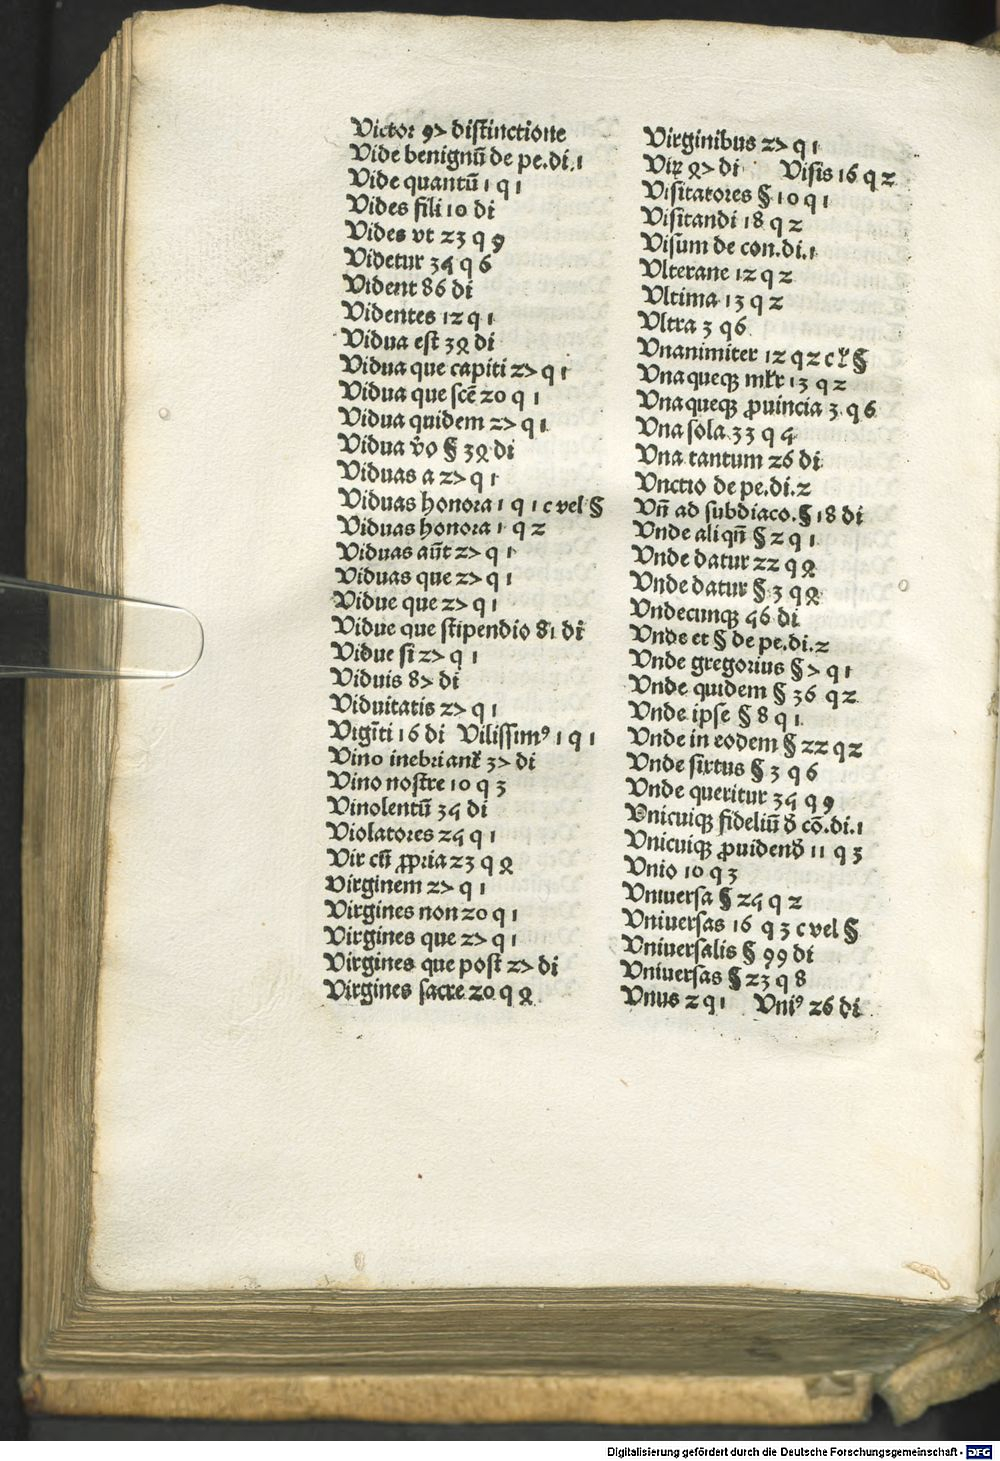 Victor 97 distinctione
Vide benignū de pe.di.1
Vide quantū 1 q 1
Vides fili 10 di
Vides vt 23 q 9
Videtur 34 q 6
Vident 86 di
Videntes 12 q 1
Vidua est 32 di
Vidua que capiti 27 q 1
Vidua que scē 20 q 1
Vidua quidem 27 q 1
Vidua v̄o § 32 di
Viduas a 27 q 1
Viduas honora 1 q 1 c vel §
Viduas honora 1 q 2
Viduas aūt 27 q 1
Viduas que 27 q 1
Vidue que 27 q 1
Vidue que stipendio 81 di
Vidue si 27 q 1
Viduis 87 di
Viduitatis 27 q 1
Vigīti 16 di Vilissimꝰ 1 q 1
Vino inebriant̄ 37 di
Vino nostre 10 q 3
Vinolentū 34 di
Violatores 24 q 1
Vir cū ꝓpria 23 q
Virginem 27 q 1
Virgines non 20 q 1
Virgines que 27 q 1
Virgines que post 27 di
Virgines sacre 20 q
Virginibus 27 q 1
di Visis 16 q 2
Visitatores § 10 q 1
Visitandi 18 q 2
Visum de con.di.1
Vlterane 12 q 2
Vltima 13 q 2
Vltra 3 q 6
Vnanimiter 12 q 2 c vl̄ §
Vnaqueqꝫ mlr̄ 13 q 2
Vnaqueqꝫ ꝓuincia 3 q 6
Vna sola 33 q 4
Vna tantum 26 di
Vnctio de pe.di.2
Vn̄ ad subdiaco. § 18 di
Vnde aliqn̄ § 2 q 1
Vnde datur 22 q
Vnde datur § 3 q
Vndecunqꝫ 46 di
Vnde et § de pe.di.2
Vnde gregorius § 7 q 1
Vnde quidem § 36 q 2
Vnde ipse § 8 q 1
Vnde in eodem § 22 q 2
Vnde sixtus § 3 q 6
Vnde queritur 34 q 9
Vnicuiqꝫ fideliū đ cō.di.1
Vnicuiqꝫ ꝓuidenđ 11 q 3
Vnio 10 q 3
Vniuersa § 24 q 2
Vniuersas 16 q 3 c vel §
Vniuersalis § 99 di
Vniuersas § 23 q 8
Vnus 2 q 1 Vniꝰ 26 di
Digitalisierung gefördert durch die Deutsche Forschungsgemeinschaft - DFG